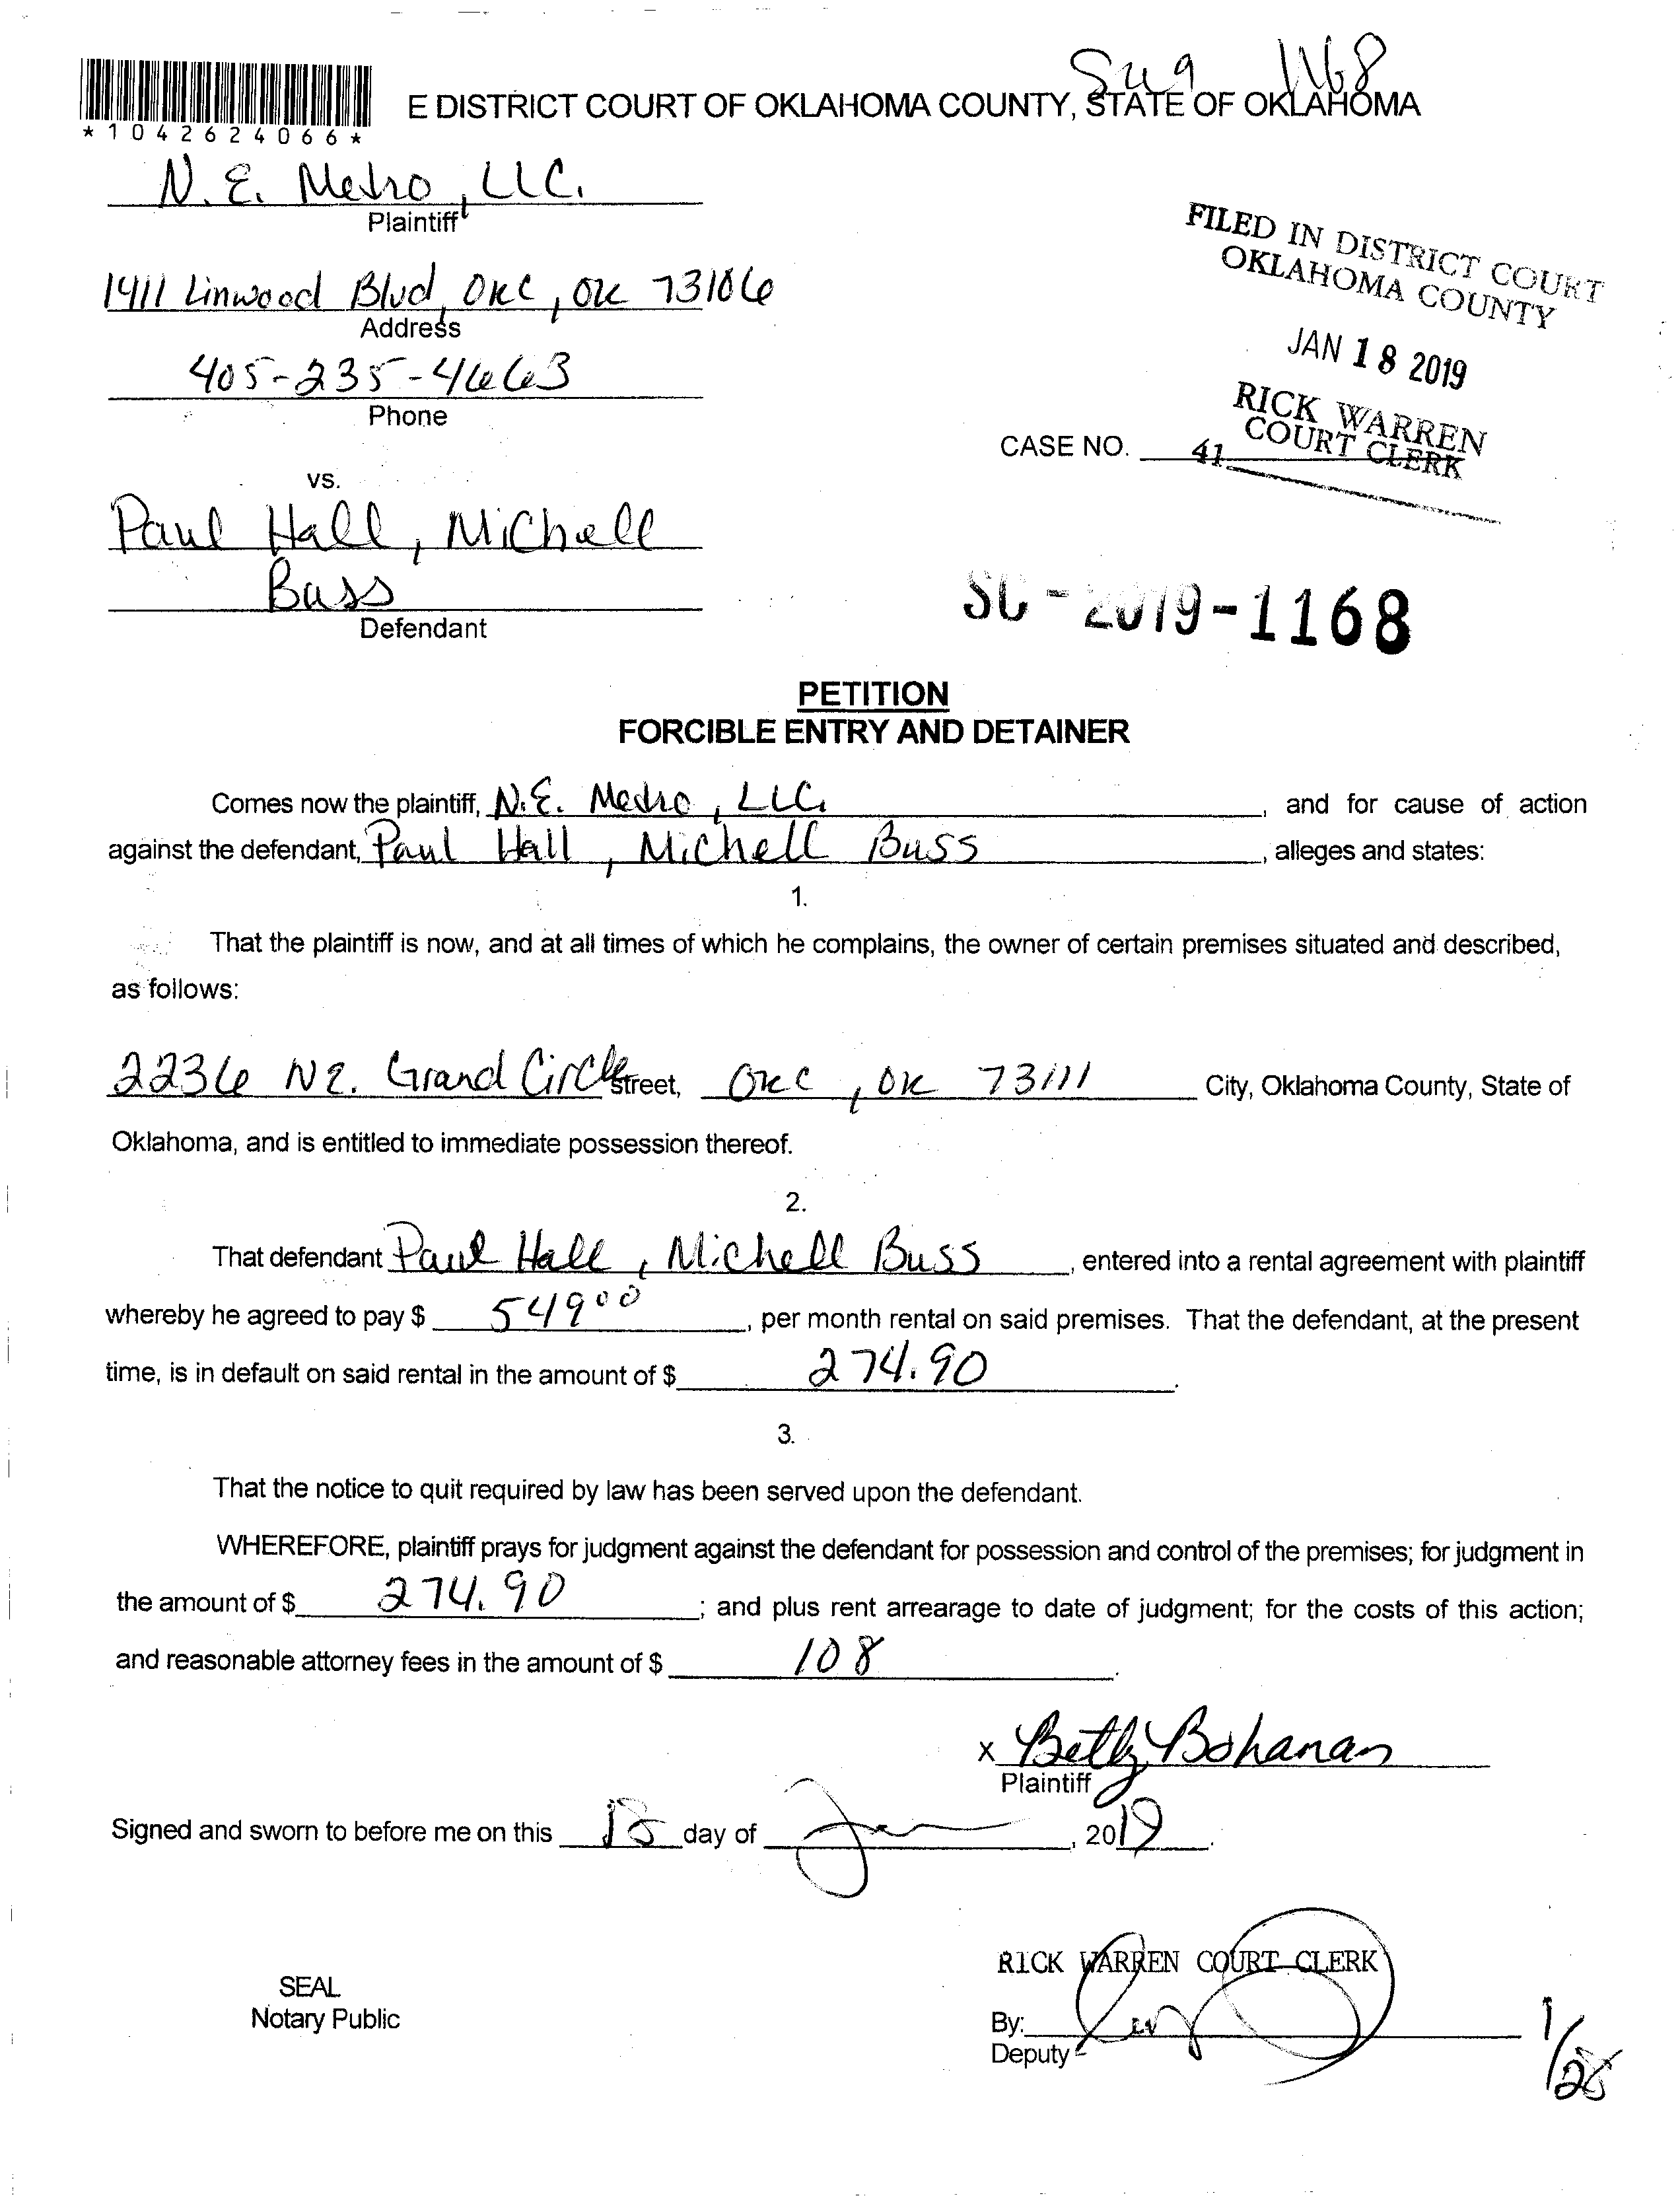 1168
E DISTRICT COURT OF OKLAHOMA COUNTY, STATE OF OKLAHOMA
*1042624066*
N.E. Metro, LLC.
Plaintiff
1411 Linwood Blvd, OKC, OK 73106
Address
405-235-4663
Phone
FILED IN DISTRICT COURT
OKLAHOMA COUNTY
JAN 18 2019
RICK WARREN
COURT CLERK
CASE NO.
41
vs.
Paul Hall, Michell
Buss
Defendant
SC-2019-1168
PETITION
FORCIBLE ENTRY AND DETAINER
Comes now the plaintiff, N.E. Metro, LLC. , and for cause of action
against the defendant, Paul Hall, Michell Buss , alleges and states:
1.
That the plaintiff is now, and at all times of which he complains, the owner of certain premises situated and described,
as follows:
2236 NE. Grand Circle Street, OKC, OK 73111 City, Oklahoma County, State of
Oklahoma, and is entitled to immediate possession thereof.
2.
That defendant Paul Hall, Michell Buss , entered into a rental agreement with plaintiff
whereby he agreed to pay $ 54900 , per month rental on said premises. That the defendant, at the present
time, is in default on said rental in the amount of $ 274.90 .
3.
That the notice to quit required by law has been served upon the defendant.
WHEREFORE, plaintiff prays for judgment against the defendant for possession and control of the premises; for judgment in
the amount of $ 274.90 ; and plus rent arrearage to date of judgment; for the costs of this action;
and reasonable attorney fees in the amount of $ 108 .
x Betty Bohanan
Plaintiff
Signed and sworn to before me on this 18 day of Jan , 2019.
RICK WARREN COURT CLERK
SEAL
Notary Public
By:
Deputy